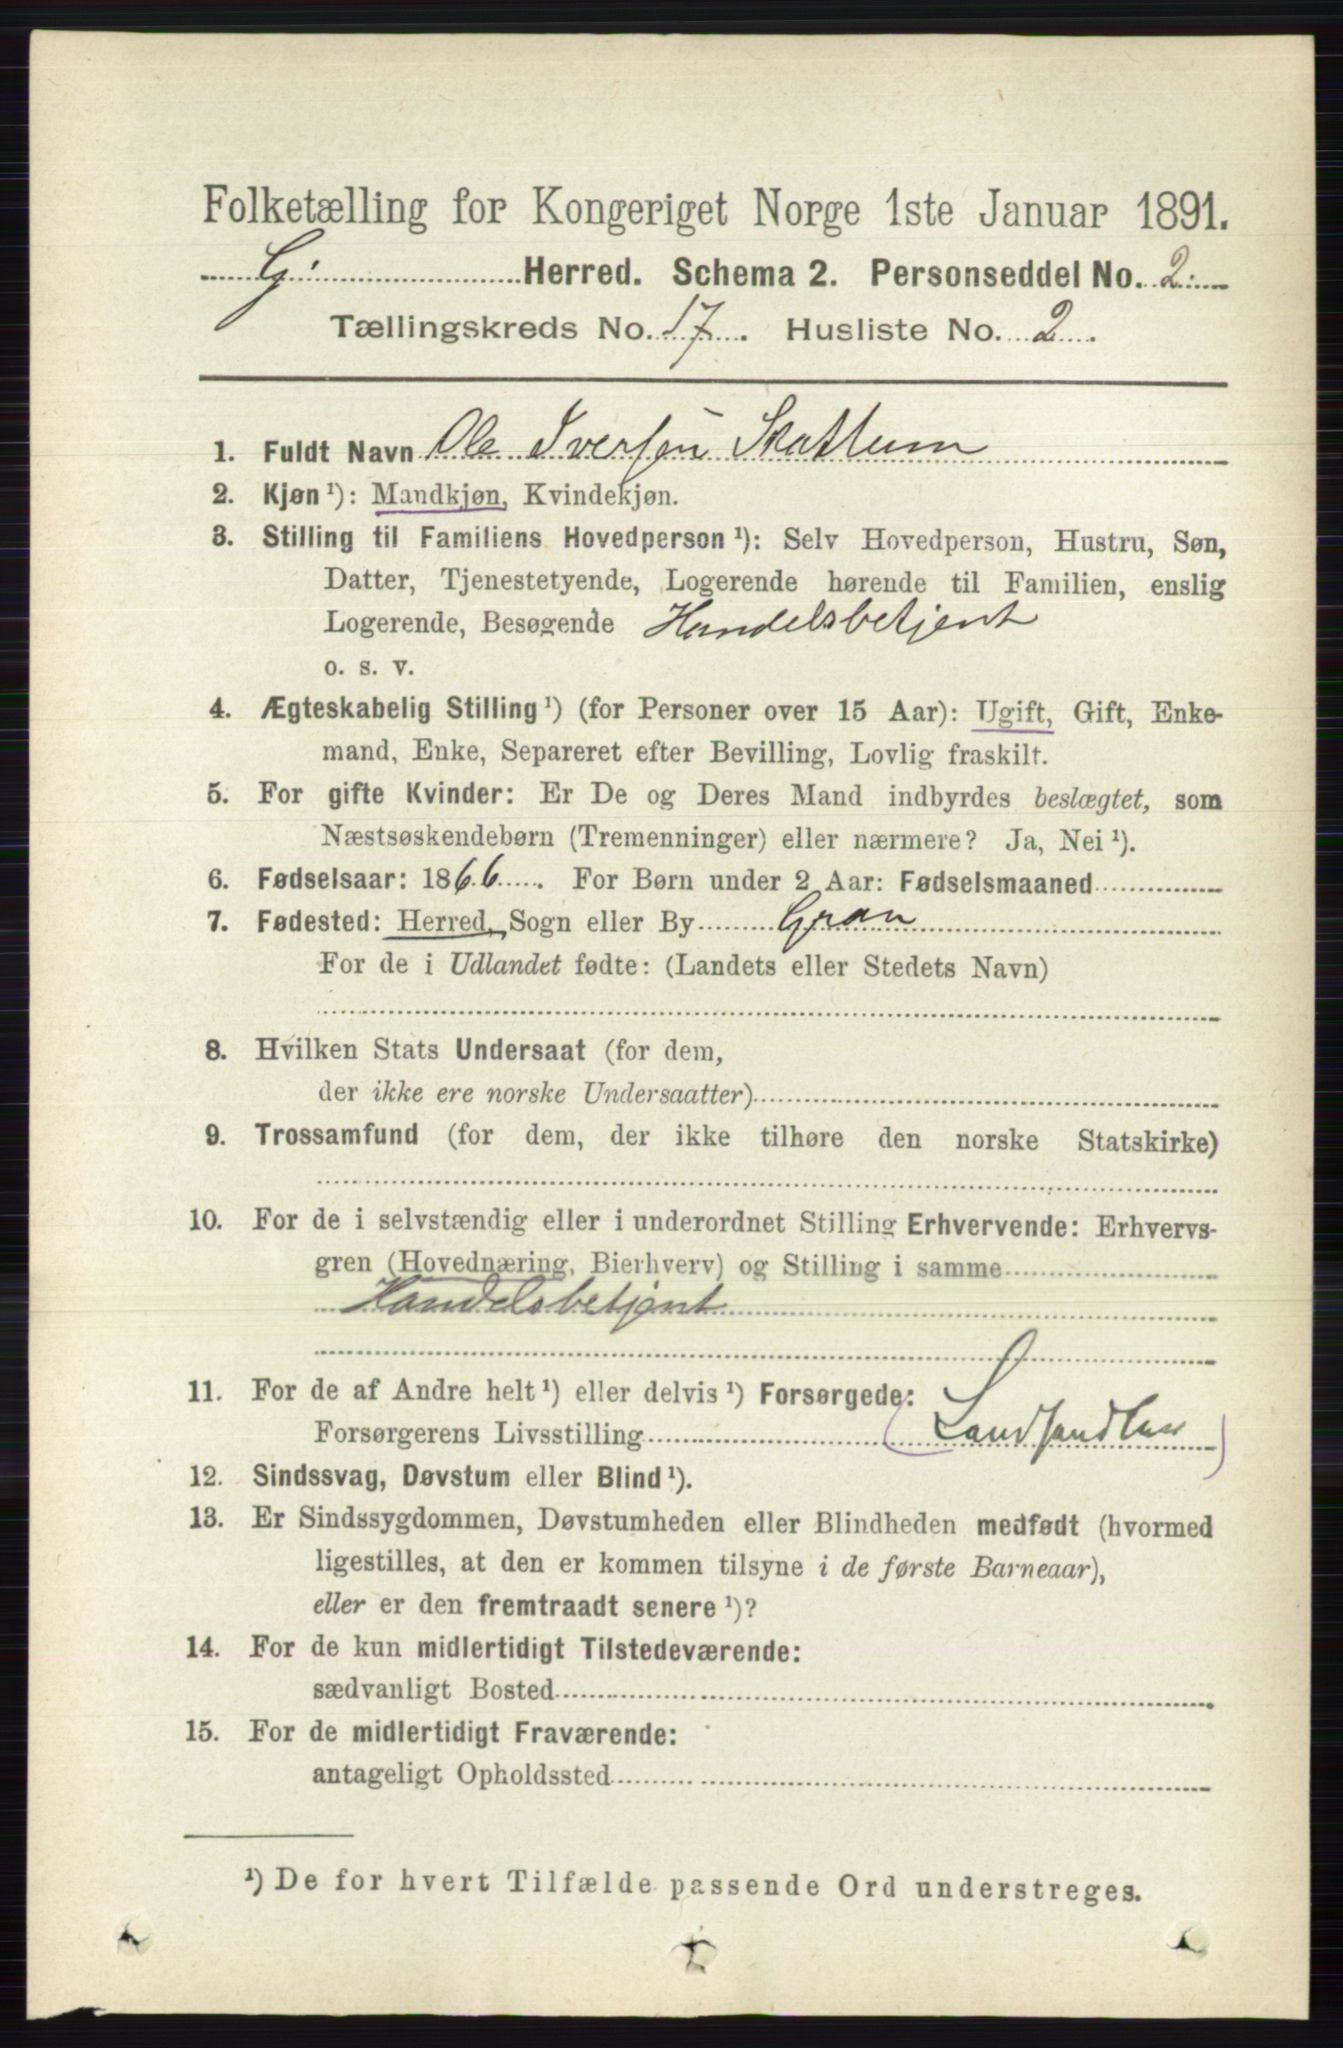 Folketælling for Kongeriget Norge 1ste Januar 1891.
G. Herred. Schema 2. Personseddel No. 2.
Tællingskreds No. 17. Husliste No. 2.
1. Fuldt Navn Ole Iversen Skattum
2. Kjøn ¹): Mandkjøn, Kvindekjøn.
3. Stilling til Familiens Hovedperson ¹): Selv Hovedperson, Hustru, Søn,
Datter, Tjenestetyende, Logerende hørende til Familien, enslig
Logerende, Besøgende Handelsbetjent
o. s. v.
4. Ægteskabelig Stilling ¹) (for Personer over 15 Aar): Ugift, Gift, Enke-
mand, Enke, Separeret efter Bevilling, Lovlig fraskilt.
5. For gifte Kvinder: Er De og Deres Mand indbyrdes beslægtet, som
Næstsøskendebørn (Tremenninger) eller nærmere? Ja, Nei ¹).
6. Fødselsaar: 1866. For Børn under 2 Aar: Fødselsmaaned
7. Fødested: Herred, Sogn eller By Gran
For de i Udlandet fødte: (Landets eller Stedets Navn)
8. Hvilken Stats Undersaat (for dem,
der ikke ere norske Undersaatter)
9. Trossamfund (for dem, der ikke tilhøre den norske Statskirke)
10. For de i selvstændig eller i underordnet Stilling Erhvervende: Erhvervs-
gren (Hovednæring, Bierhverv) og Stilling i samme
Handelsbetjent
11. For de af Andre helt ¹) eller delvis ¹) Forsørgede:
Forsørgerens Livsstilling (Landhandler)
12. Sindssvag, Døvstum eller Blind ¹).
13. Er Sindssygdommen, Døvstumheden eller Blindheden medfødt (hvormed
ligestilles, at den er kommen tilsyne i de første Barneaar),
eller er den fremtraadt senere ¹)?
14. For de kun midlertidigt Tilstedeværende:
sædvanligt Bosted
15. For de midlertidigt Fraværende:
antageligt Opholdssted
¹) De for hvert Tilfælde passende Ord understreges.